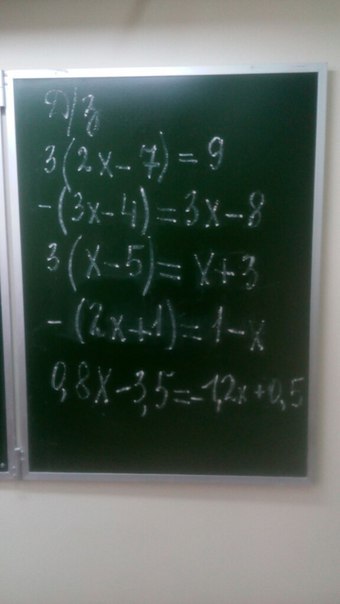 Д/з
3(2x-7)=9
-(3x-4)=3x-8
3(x-5)=x+3
-(2x+1)=1-x
0,8x-3,5=-1,2x+0,5